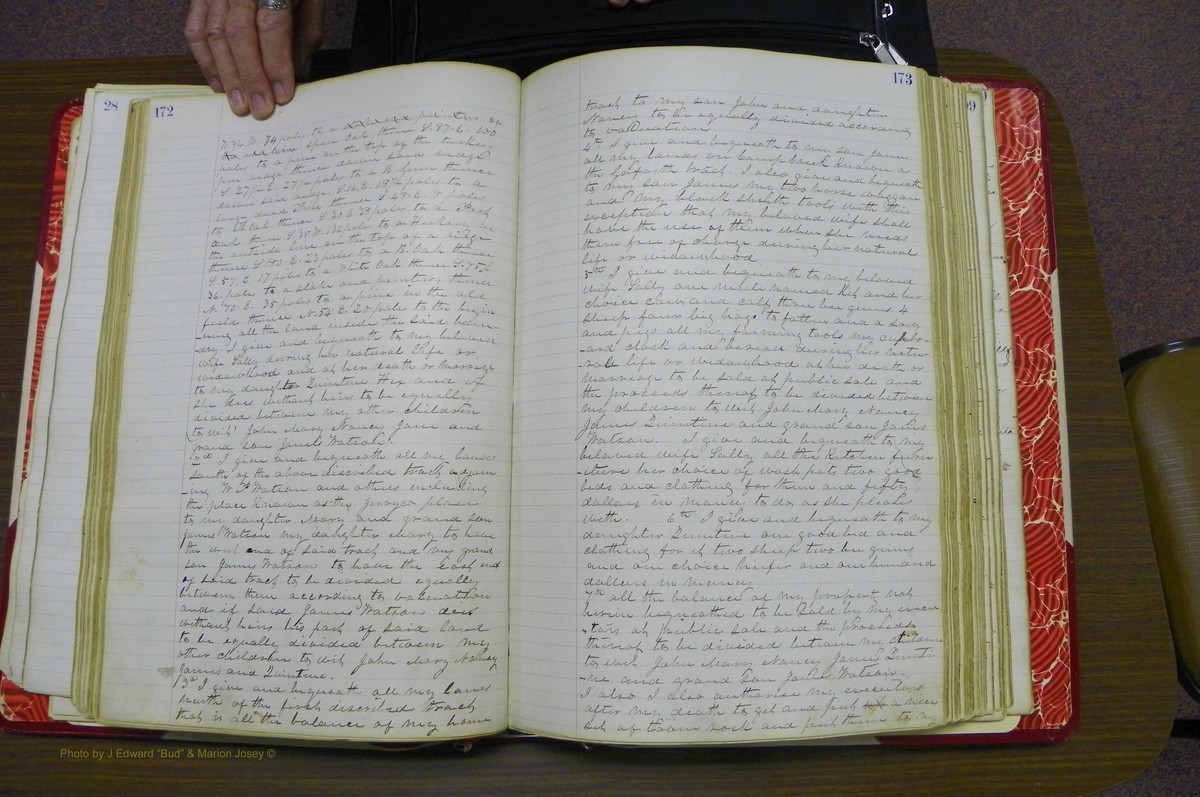 28
172
poles to a pine on the top of the turkey
pine ridge thence down said ridge
S. 27½ E. 27½ poles to a B. Gum thence
down said ridge S. 16 E. 18½ poles to a
large dead Pine thence S. 43 E. 7 poles
the outside line on the top of a ridge
thence S. 83 E. 23 poles to a B. Oak thence
S. 57. E. 17 poles to a White Oak thence S. 75 E.
36 poles to a stake and pointers thence
N. 70. E. 35 poles to a pine in the old
field thence N. 54 E. 20 poles to the begin
-ning all the land inside the said boun-
-dry I give and bequeath to my beloved
wife Sally during her natural life or
widowhood and at her death or marriage
to my daughter Quintine Hix and if
she dies without heirs to be equally
divided between my other children
to wit John Mary Nancy Jane and
grand son James Watson.
2nd I give and bequeath all my lands
south of the above discribed track adjoin
-ing W. P. Watson and others including
the place Known as the place
to my daughter Mary and grand son
James Watson my daughter Mary to have
the west end of said track and my grand
son James Watson to have the East end
of said track to be divided equally
between them according to valuation
and if said James Watson dies
without heirs his part of said land
to be equally divided between my
other children to wit John Mary Nancy
James and Quintine.
3rd I give and bequeath all my lands
north of the first discribed track
that is all the balance of my home
173
track to my son John and daughter
Nancy to be equally divided according
to valuation
4th I give and bequeath to my son James
all my lands on Camp Creek Known as
the Goforth track. I also give and bequeath
to my son James my two horse wagon
and my black smith tools with this
exception that my beloved wife shall
have the use of them when she needs
them free of charge during her natural
life or widowhood
5th I give and bequeath to my beloved
wife Sally one mule named Kit and her
choice cow and calf three bee gums 4
sheep four big hogs to fatten and a sow
and pigs all my farming tools my cupbo-
-ard clock and bureau during her natu-
-ral life or widowhood at her death or
marriage to be sold at public sale and
the proceeds thereof to be divided between
my children to wit John Mary Nancy
James Quintine and grand son James
Watson. I give and bequeath to my
beloved wife Sally all the Kitchen furn-
-iture her choice of wash pots two good
beds and clothing for them and fifty
dollars in money to do as she please
with. 6th I give and bequeath to my
daughter Quintine one good bed and
clothing for it two sheep two bee gums
and one choice heifer and one hundred
dollars in money
7th all the balance of my propert not
herein bequeathed to be sold by my execu
-tors at public sale and the proceeds
thereof to be divided between my children
to wit John Mary Nancy James Quinti
-ne and grand son James Watson
I also I also authorise my executors
after my death to get and put a nice
set of toom rock and put them to my
Photo by J Edward "Bud" & Marion Josey ©